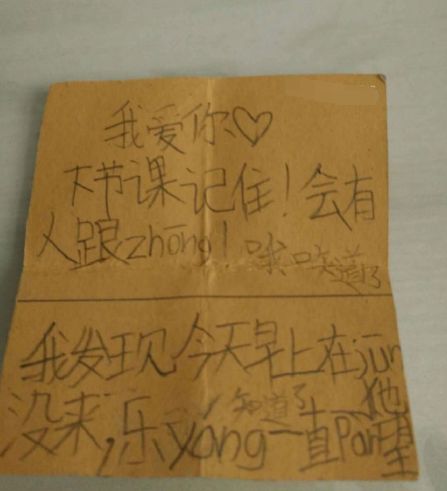 我爱你♡
下节课记住！会有
人跟zhōng！哦知道了
我发现今天早上在jūn
知道了
没来，乐yang一直pan望他